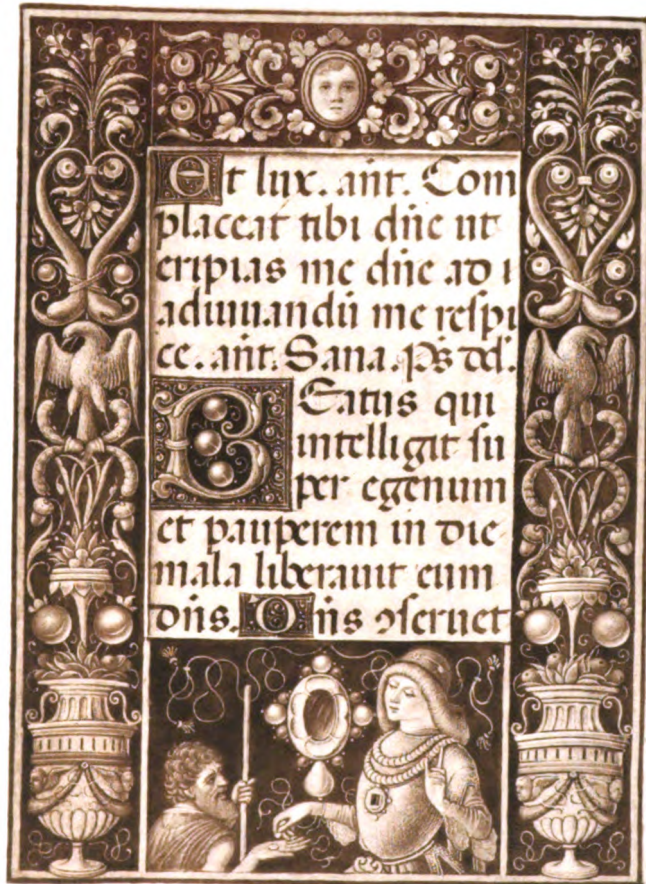 Et lux. añt. Com
placeat tibi dñe ut
eripias me dñe ad i
adiuuandũ me respi
ce. añt. Sana. p̃s
Beatus qui
intelligit su
per egenum
et pauperem in die
mala liberauit eum
dñs. Dñs ꝯseruet